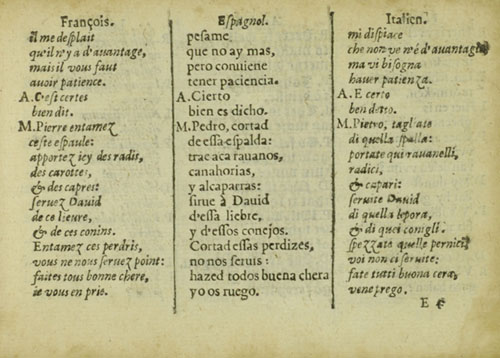 François.
Il me desplait
qu'il n'y a d'auantage,
mais il vous faut
auoir patience.
A. C'est certes
bien dit.
M. Pierre entamez
ceste espaule:
apportez icy des radis,
des carottes,
& des capres:
seruez Dauid
de ce lieure,
& de ces conins.
Entamez ces perdris,
vous ne nous seruez point:
faites tous bonne chere,
ie vous en prie.
Espagnol.
pesame
que no ay mas,
pero conuiene
tener paciencia.
A. Cierto
bien es dicho.
M. Pedro, cortad
de essa espalda:
trae aca rauanos,
canahorias,
y alcaparras:
sirue à Dauid
d'essa liebre,
y d'essos conejos.
Cortad essas perdizes,
no nos seruis:
hazed todos buena chera
yo os ruego.
Italien.
mi dispiace
che non ve n'é d'auantage
ma vi bisogna
hauer patienza.
A. E certo
ben detto.
M. Pietro, tagliate
di quella spalla:
portate qui rauanelli,
radici,
& capari:
seruite Dauid
di quella lepora,
& di quei conigli.
spezzate quelle pernici,
voi non ci seruite:
fate tutti buona cera,
vene prego.
E